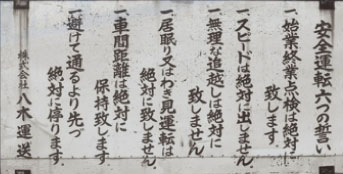 安全運転六つの誓い
一、始業終業点検は絶対に
致します。
一、スピードは絶対に出しません。
一、無理な追越しは絶対に
致しません。
一、居眠り又はわき見運転は
絶対に致しません。
一、車間距離は絶対に
保持致します。
一、避けて通るより先づ
絶対に停ります。
株式会社 八木運送